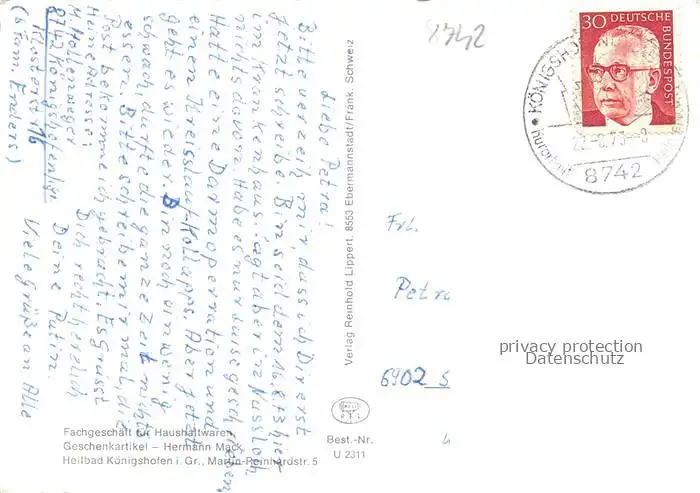 Liebe Petra!
Bitte verzeih mir, dass ich Dir erst
jetzt schreibe. Bin seid dem 16.6.73 hier
im Krankenhaus. Sagt aber in Nussloch
nichts davon. Habe es nur Luise geschrieben,
Hatte eine Darmoperration und
einen Kreislauf-Kollapps. Aber jetzt
geht es wieder. Bin noch ein wenig
schwach, durfte die ganze Zeit nichts
essen. Bitte schreibe mir mal, die
Post bekomme ich gebracht. Es grüsst
Meine Adresse: Dich recht herzlich
M. Hollenweger Deine Patin.
8742 Königshofen i. Gr. Viele Grüße an Alle
Klosterstr. 16
(b. Fam. Enders)
Fachgeschäft für Haushaltwaren
Geschenkartikel – Hermann Mack
Heilbad Königshofen i. Gr., Martin-Reinhardstr. 5
Verlag Reinhold Lippert, 8553 Ebermannstadt/Fränk. Schweiz
Best.-Nr.
U 2311
8742
30 DEUTSCHE
BUNDESPOST
KÖNIGSHOFEN
8742
Frl.
Petra
6902 S
privacy protection
Datenschutz